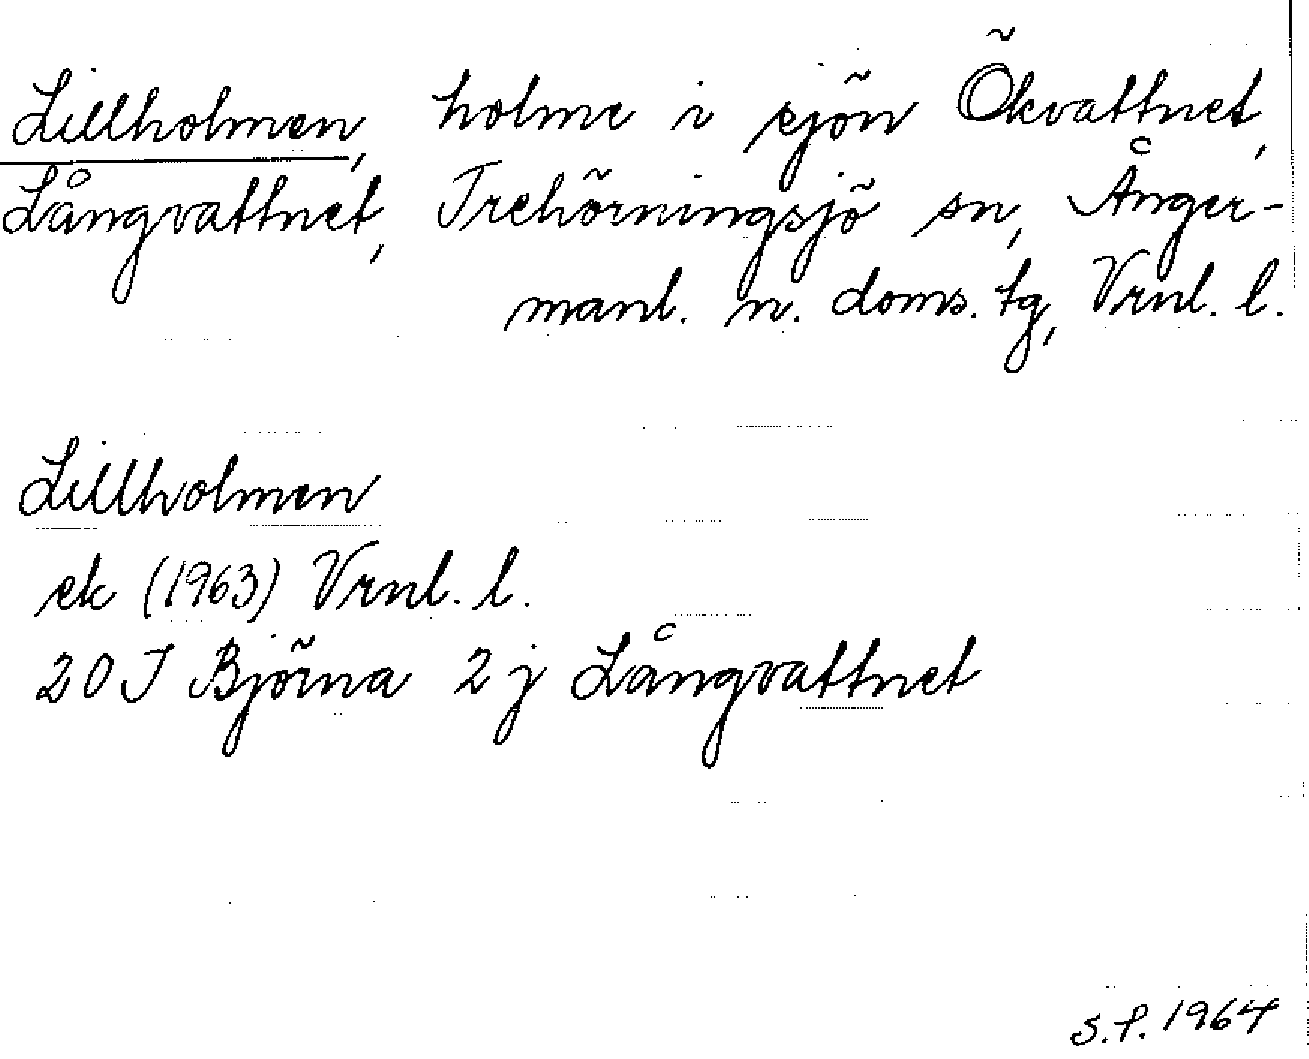 Lillholmen, holme i sjön Ökvattnet,
Långvattnet, Trehörningsjö sn, Ånger-
manl. n. doms. tg, Vrnl. l.
Lillholmen
ek (1963) Vrnl. l.
20 J Björna 2 j Långvattnet
S.P. 1964